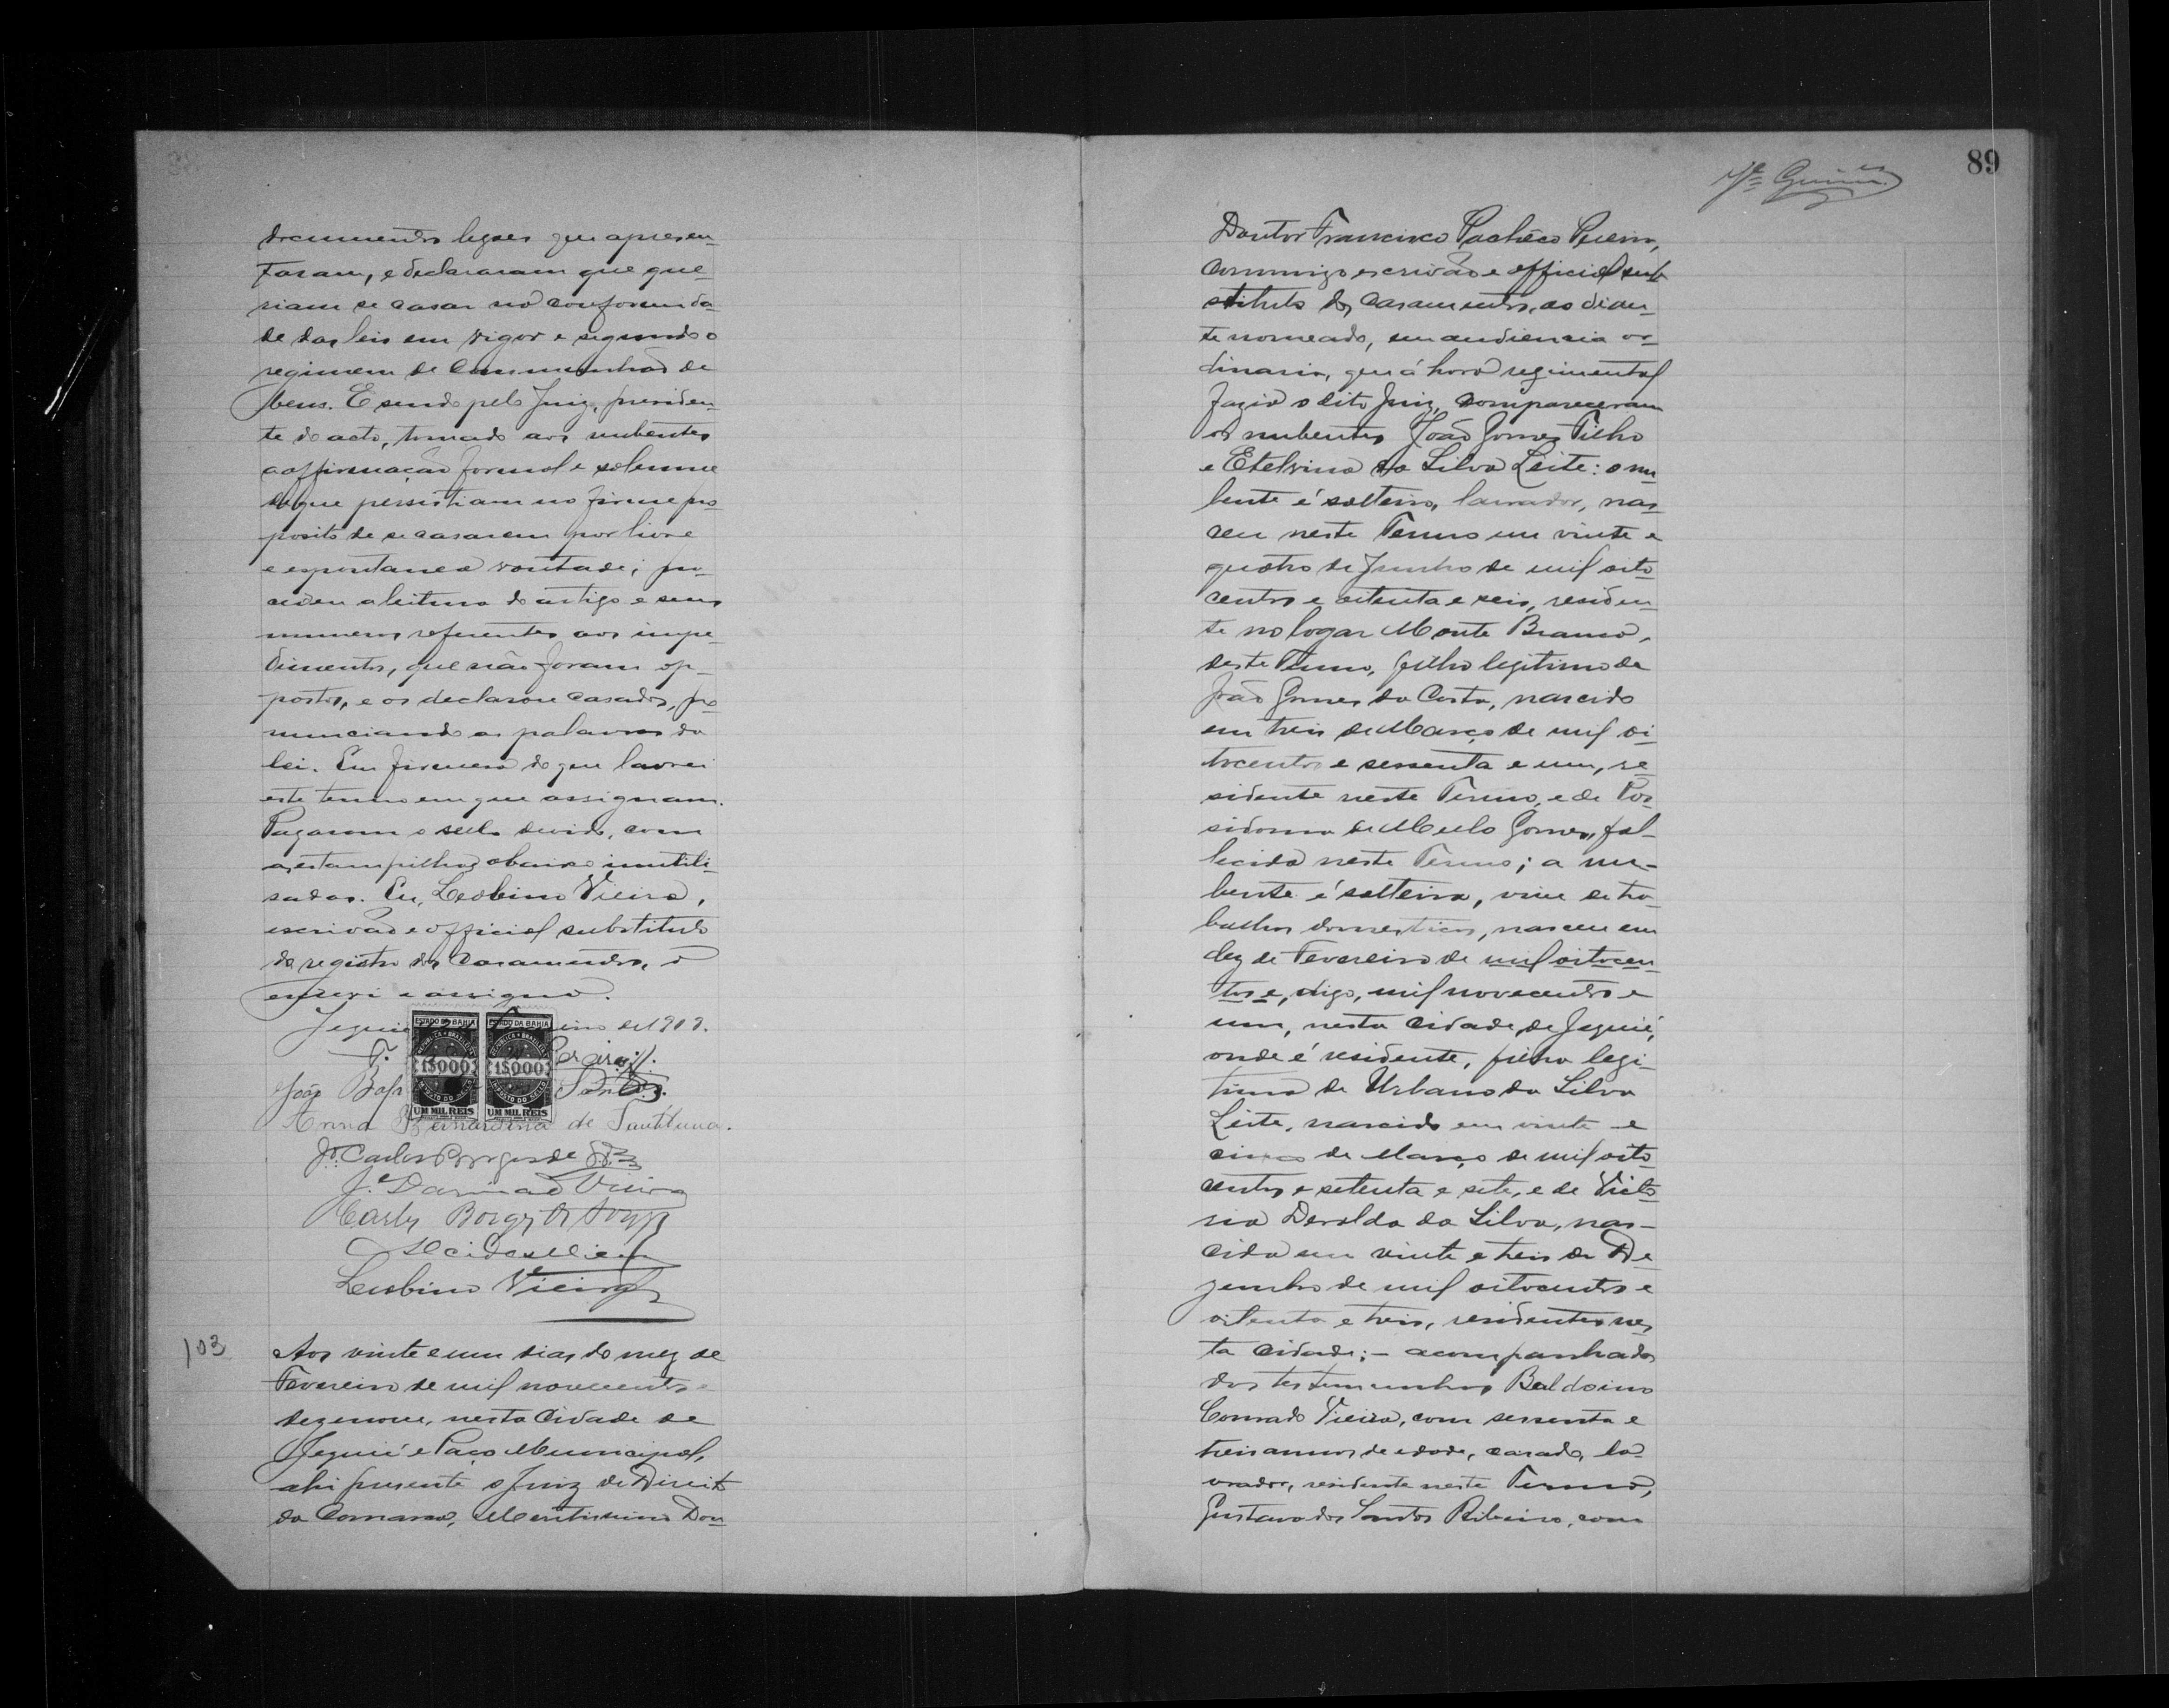 89
documentos legaes que apresen-
taram, e declararam que que-
riam se casar na conformida-
de das leis em vigor e segundo o
regimem de communhão de
bens. E sendo pelo Juiz, presiden-
te do acto, tomado aos nubentes
a affirmação formal e solemne
de que persistiam no firme pro-
posito de se casarem por livre
e espontanea vontade; pro-
cedeu a leitura do artigo e seus
numeros referentes aos impe-
dimentos, que não foram op-
postos, e os declarou casados, pro-
nunciando as palavras da
lei. Em firmeza do que lavrei
este termo em que assignam.
Pagaram o sello devido, com
as estampilhas abaixo inutili-
sadas. Eu, Leobino Vieira,
escrivão e official substituto
do registro dos casamentos, o
escrevi e assigno.
Jequié de 1919.
ESTADO DA BAHIA ESTADO DA BAHIA
F. Pereira
1$000 1$000
João Bap Santos.
UM MIL REIS UM MIL REIS
Anna Bernardina de Santanna.
Je. Carlos Borges de
Je. Damião Vieira
Carlos Borges de Souza
Leobino Vieira
103
Aos vinte e um dias do mez de
Fevereiro de mil novecentos e
dezenove, nesta Cidade de
Jequié e Paço Municipal,
ahi presente o Juiz de Direito
da Comarca, Meritissimo Dou-
Doutor Francisco Pachêco Pereira,
commigo escrivão e official sub-
stituto dos casamentos, ao dian-
te nomeado, em audiencia or-
dinaria, que á hora regimental
fazia o dito Juiz, compareceram
os nubentes João Gomes Filho
e Etelvina da Silva Leite: o nu-
bente é solteiro, lavrador, nas-
ceu neste Termo em vinte e
quatro de Junho de mil oito-
centos e oitenta e seis, residen-
te no logar Monte Branco,
deste Termo, filho legitimo de
João Gomes da Costa, nascido
em treis de Março de mil oi-
tocentos e sessenta e um, re-
sidente neste Termo, e de Pos-
sidonia de Mello Gomes, fal-
lecida neste Termo; a nu-
bente é solteira, vive de tra-
balhos domesticos, nasceu em
dez de Fevereiro de mil oitocen-
tos e, digo, mil novecentos e
um, nesta Cidade de Jequié,
onde é residente, filha legi-
tima de Urbano da Silva
Leite, nascido em vinte e
cinco de Março de mil oito-
centos e setenta e sete, e de Victo-
ria Deralda da Silva, nas-
cida em vinte e treis de De-
zembro de mil oitocentos e
oitenta e treis, residentes nes-
ta Cidade; - acompanhados
das testemunhas Baldoino
Conrado Vieira, com sessenta e
treis annos de edade, casado, la-
vrador, residente neste Termo,
Gustavo dos Santos Ribeiro, com